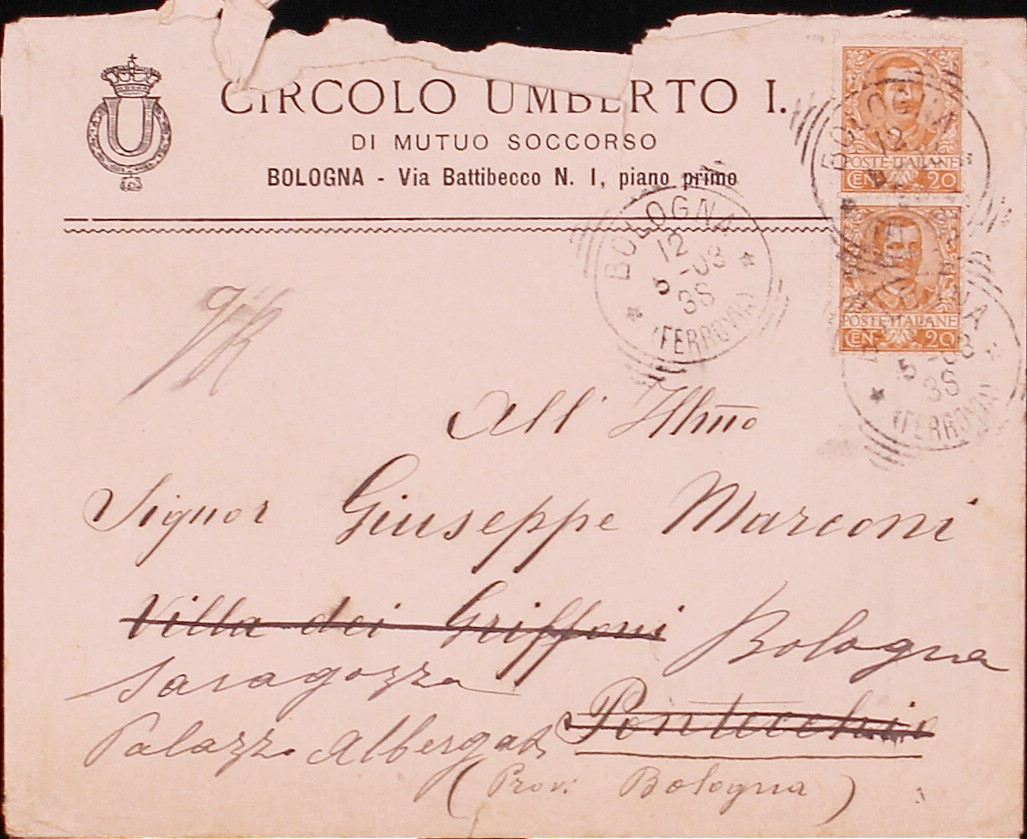 CIRCOLO UMBERTO I.
DI MUTUO SOCCORSO
BOLOGNA - Via Battibecco N. 1, piano primo
U
POSTE ITALIANE
CEN. 20
POSTE ITALIANE
CEN. 20
BOLOGNA
12
BOLOGNA
12
5 -03
3S
(FERROVIA)
5 -03
3S
(FERROVIA)
All' Illmo
Signor Giuseppe Marconi
Villa dei Griffoni Bologna
Saragozza
Pontecchio
Palazzo Albergati
(Prov: Bologna)